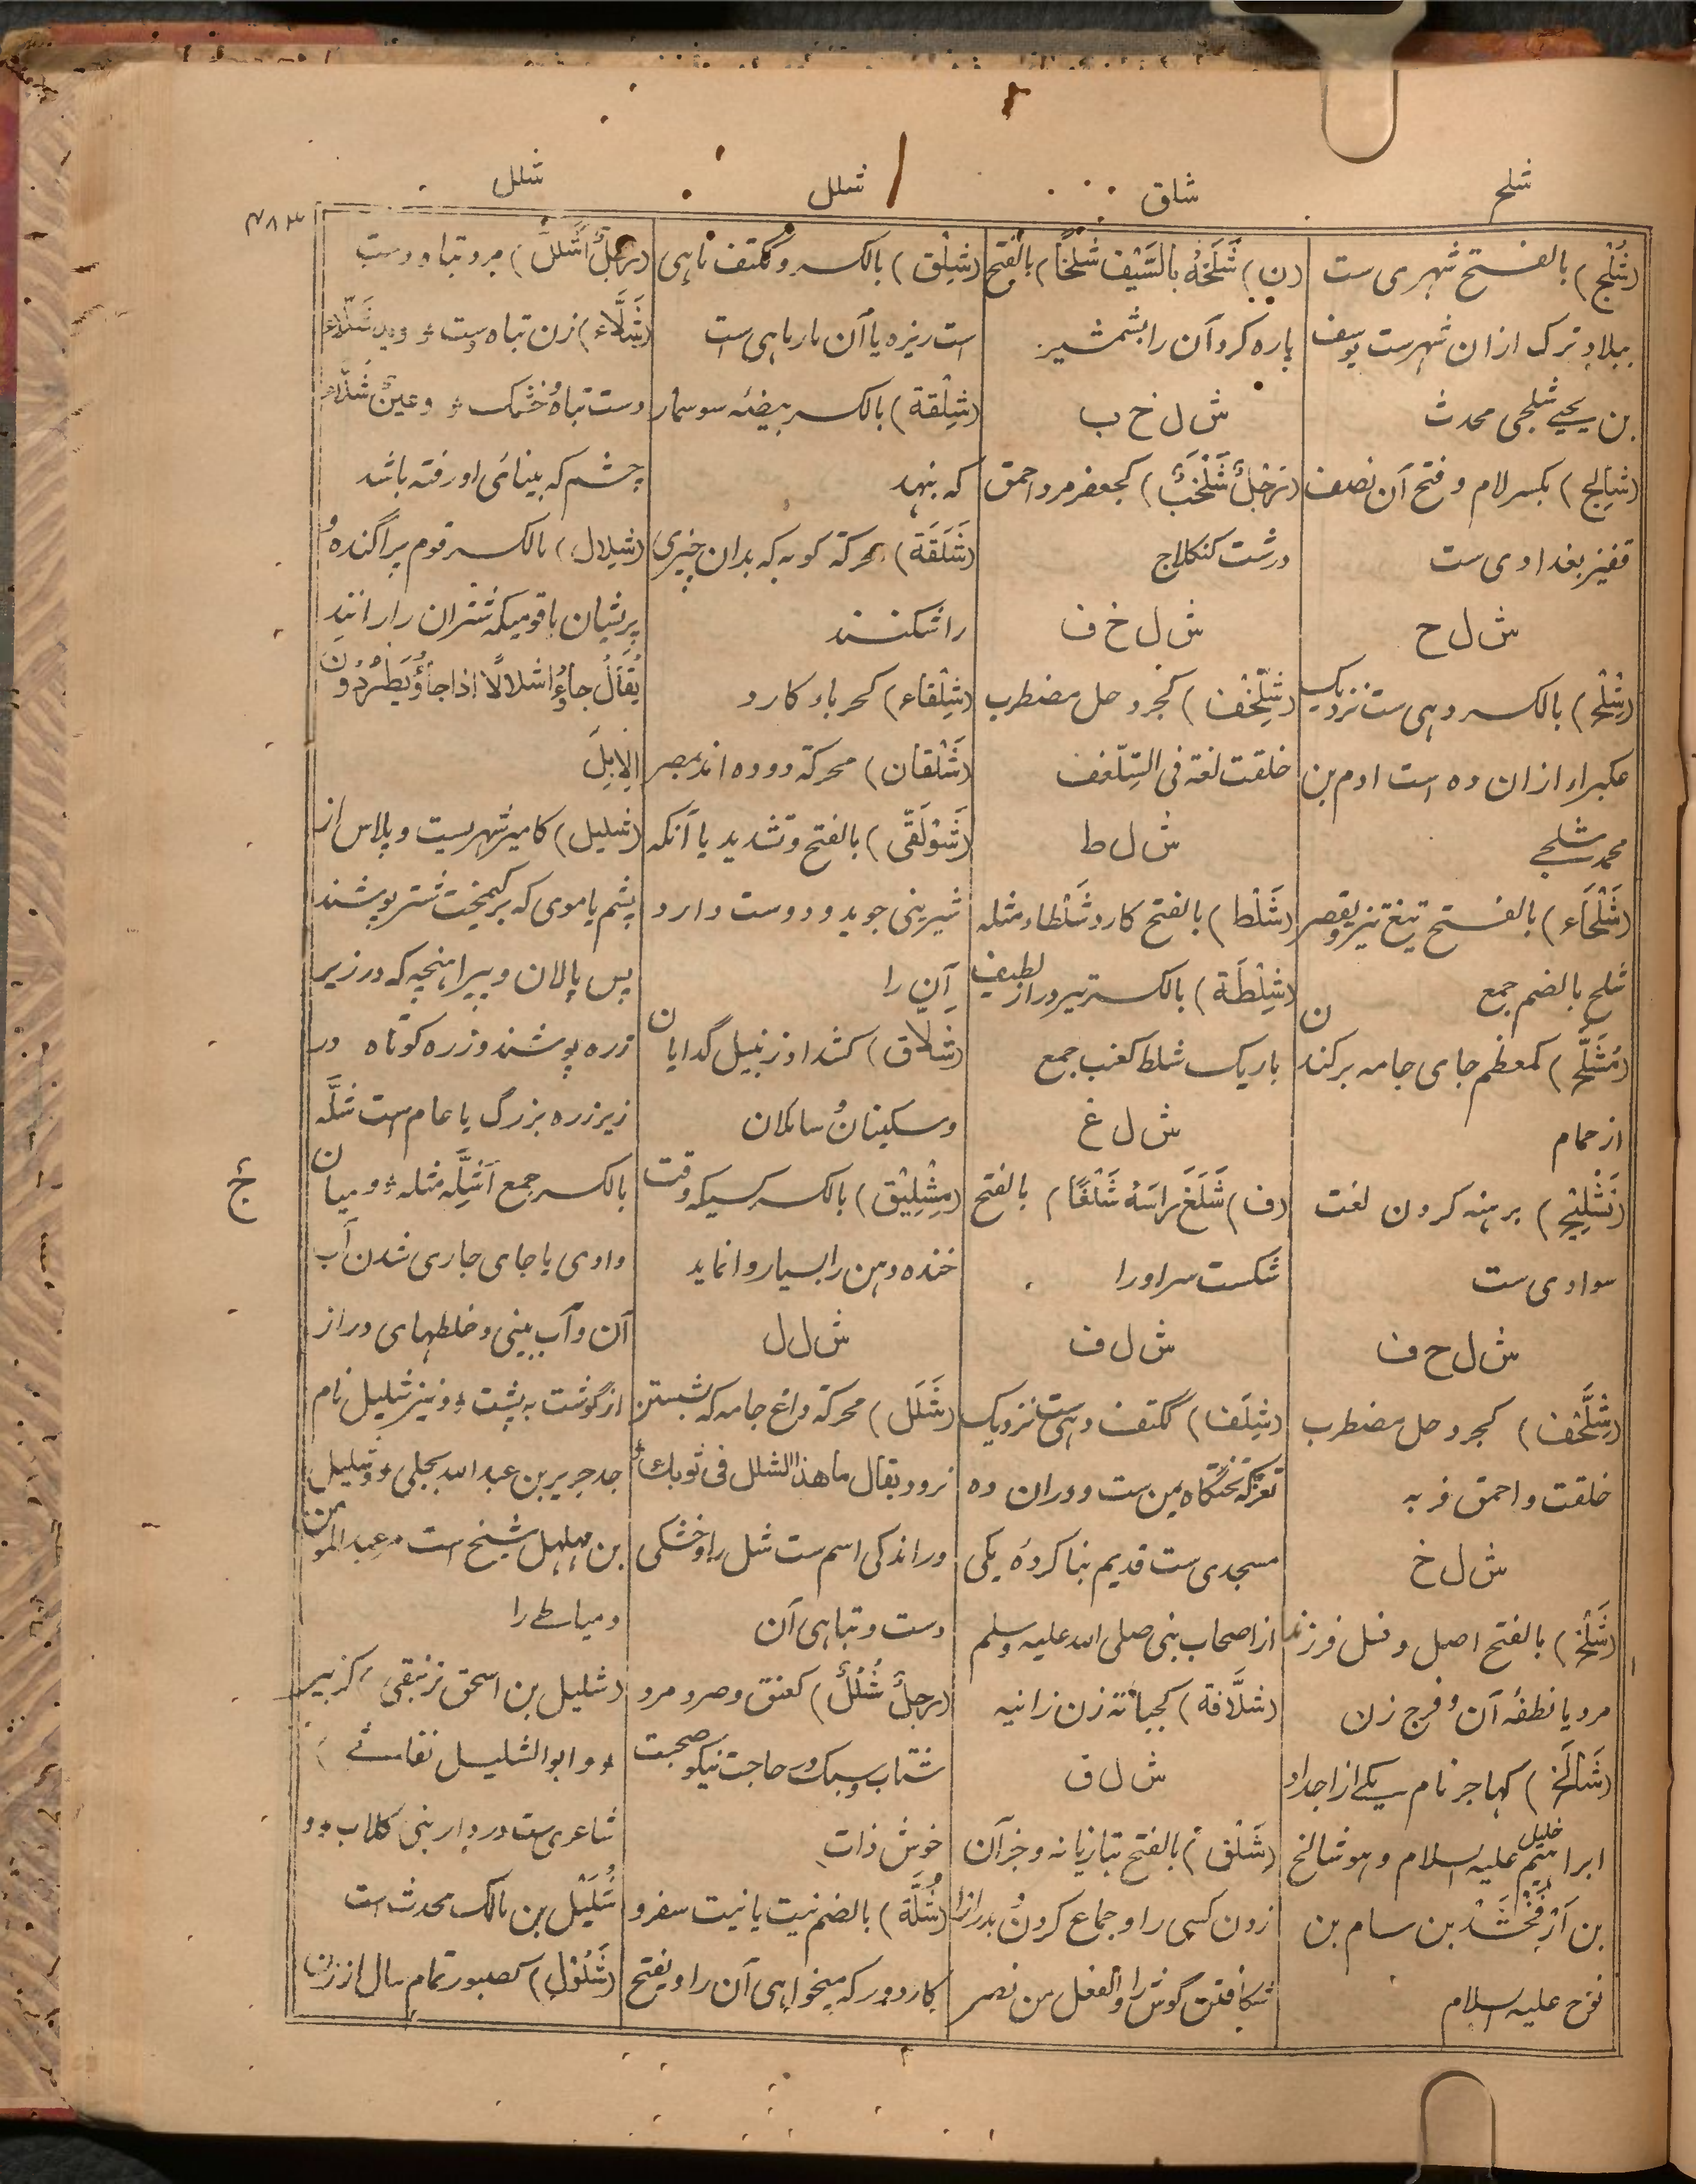 شلح
شلق
شلل
شلل
۴۸۳
(شَلْج) بالفتح شهری ست
ببلاد ترک ازان شهرست یوسف
بن یحیے شلجی محدث
(شالِج) بکسر لام و فتح آن نصف
قفیز بغدادی ست
ش ل ح
(شِلْح) بالکسر دہی ست نزدیک
عکبراء ازان ده است ادم بن
محمد شلحے
(شَلْحَاء) بالفتح تیغ تیز ویقصر
شلح بالضم جمع
(مُشَلَّح) کمعظم جای جامه برکندن
از حمام
(تَشْلِیْح) برہنه کردن لغت
سوادی ست
ش ل ح ف
(شِلَّحْف) کجردحل مضطرب
خلقت و احمق فربه
ش ل خ
(شَلْخ) بالفتح اصل و نسل فرزند
مرد یا نطفهٔ آن و فرج زن
(شَالَخ) کہاجر نام یکے از اجداد
ابراہیم خلیل علیه السلام وہو شالخ
بن اَرْفَخْشَدْ بن سام بن
نوح علیه السلام
(ن) شَلَخَهُ بِالسَّیْفِ شَلْخًا) بالفتح
پاره کرد آن را بشمشیر
ش ل خ ب
(رَجُلٌ شَلْخَبٌ) کجعفر مرد احمق
درشت کنکلاج
ش ل خ ف
(شِلَّخْف) کجردحل مضطرب
خلقت لغة فی السِّلَّغف
ش ل ط
(شَلْط) بالفتح کارد شَلْطاء مثله
(شِلْطَة) بالکسر تیر دراز لطیف
باریک شلط کعنب جمع
ش ل غ
(ف) شَلَغَ رَاسَهُ شَلْغًا) بالفتح
شکست سر او را
ش ل ف
(شِلَف) ککتف دہی ست نزدیک
تعز که تختگاه یمن ست و دران ده
مسجدی ست قدیم بنا کردهٔ یکی
از اصحاب نبی صلی الله علیه وسلم
(شلَّافة) کجبانة زن زانیه
ش ل ق
(شَلْق) بالفتح تبازیانه و جز آن
زدن کسی را و جماع کردن و بدرازا
شکافتن گوش را والفعل من نصر
(شِلْق) بالکسر و ککتف ماہی
است ریزه یا آن مارماہی است
(شِلْقة) بالکسر بیضئه سوسمار
که بنهد
(شَلَقَة) محرکة کوبه که بدان چیزی
را شکنند
(شِلْقاء) کحرباء کارد
(شَلْقان) محرکة دو ده اند بمصر
(شَوْلَقّی) بالفتح وتشدید یا آنکه
شیرینی جوید و دوست دارد
آن را
(شلاق) کشداد زنبیل گدایان
و مسکینان و سائلان
(مِشْلِیْق) بالکسر کسیکه وقت
خنده دہن را بسیار وا نماید
ش ل ل
(شَلَل) محرکة داغ جامه که بشستن
نرود یقال ما هذا الشلل فی ثوبك
و راندکی اسم ست شل را و خشکی
دست و تباہی آن
(رجلٌ شُلُلٌ) کعنق و صرد مرد
شتاب و سبک در حاجت نیکو صحبت
خوش ذات
(شُلَّة) بالضم نیت یا نیت سفر و
کار دور که میخواہی آن را و یفتح
(رَجُلٌ اَشَلَلُ) مرد تباه دست
(شَلَّاء) زن تباه دست و ید شَلّاء
دست تباه و خشک و عینٌ شَلّاء
چشم که بینائی او رفته باشد
(شِلال) بالکسر قوم پراگنده و
پریشان با قومیکه شتران را رانند
یُقَالُ جاؤا شلالًا اذا جاؤا یَطْرُدون
الاِبِلَ
(شلیل) کامیر شهریست و پلاس از
پشم یا موی که بر کیمخت شتر پوشند
پس پالان و پیراہنچه که در زیر
زره پوشند و زره کوتاه در
زیر زره بزرگ یا عام است شلَّه
بالکسر جمع اَشِلَّه مثله و میان
وادی یا جای جاری شدن آب
آن و آب بینی و خلطہای دراز
از گوشت به پشت و نیز شلیل نام
جد جریر بن عبد الله بجلی و شلیل
بن مہلہل شیخ است مر عبد المومن
دمیاطے را
(شلیل بن اسحق زنبقی) کزبیر
و ابو الشلیل نفاثے)
شاعری ست در دیار بنی کلاب و
شُلَیْل بن مالک محدث است
(شَلُوْل) کصبور تمام سال از زن
جٔ